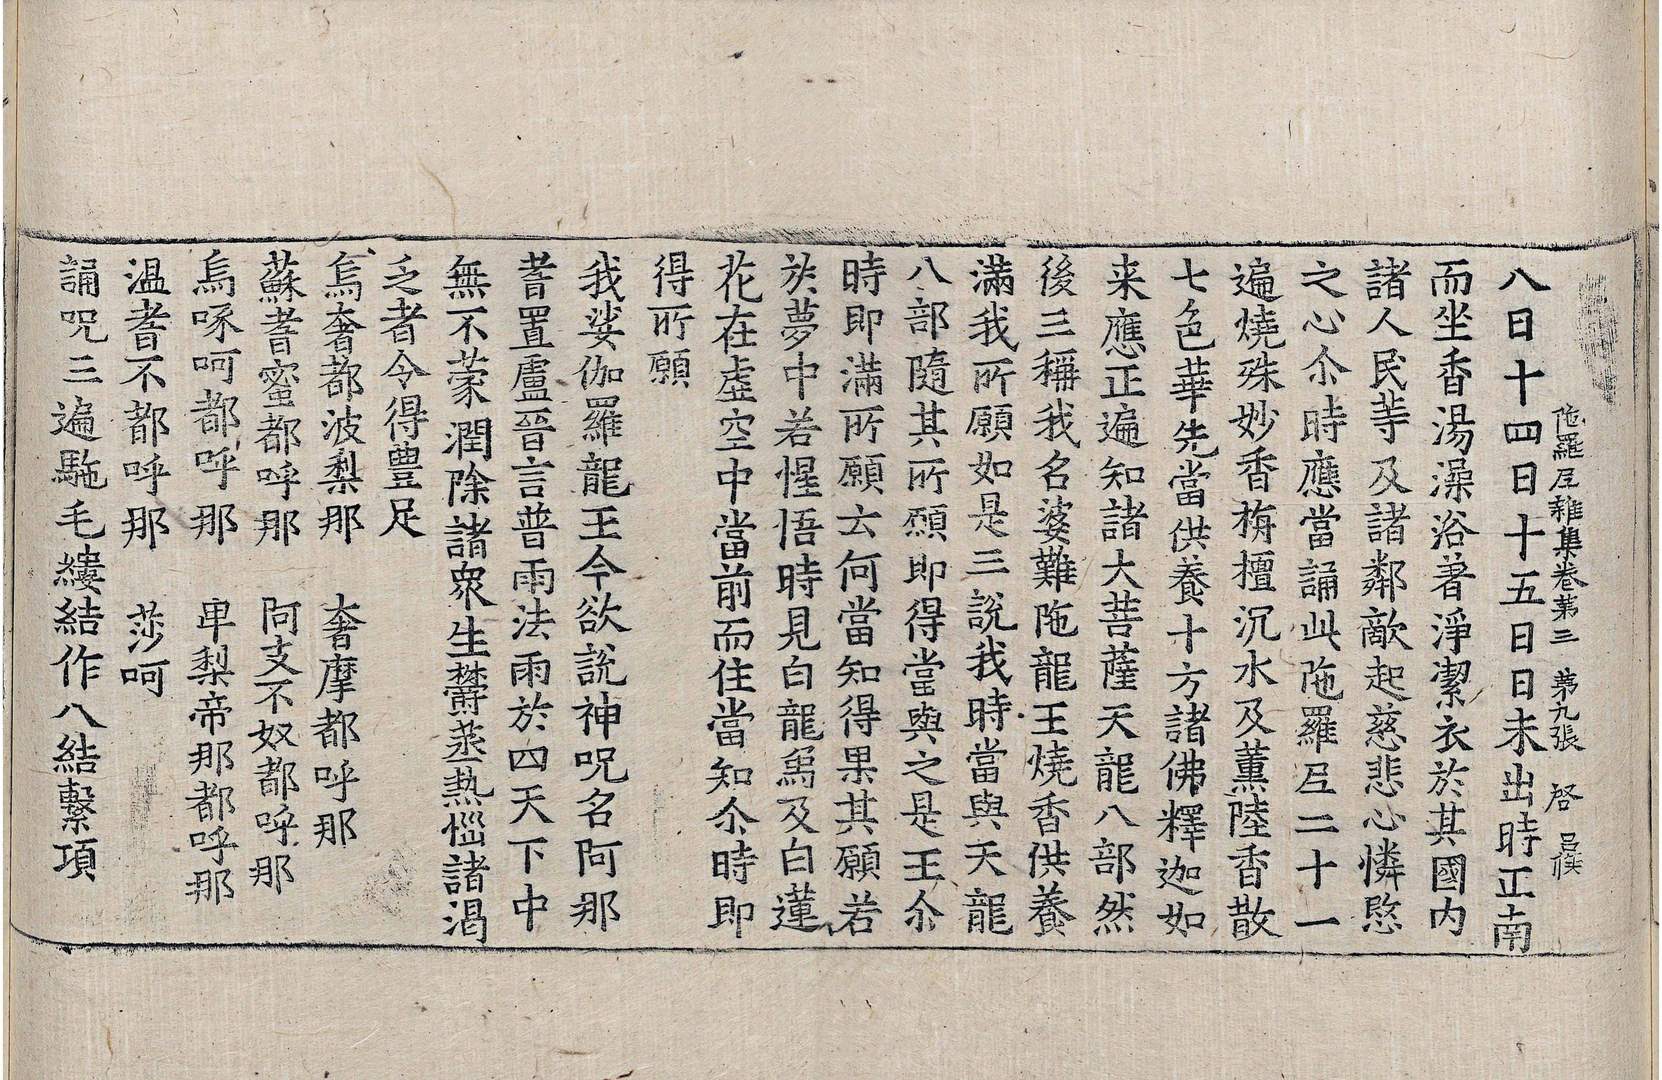 陁羅𡰱雜集卷苐三　苐九張　啓
八日十四日十五日日未出時正南
而坐香湯澡浴著淨潔衣於其國内
諸人民䓁及諸鄰敵起慈悲心憐愍
之心尒時應當誦此陁羅𡰱二十一
遍燒殊妙香栴檀沉水及薰陸香散
七色華先當供養十方諸佛釋迦如
来應正遍知諸大菩薩天龍八部然
後三稱我名婆難陁龍王燒香供養
滿我所願如是三說我時當與天龍
八部隨其所願即得當與之是王尒
時即滿所願云何當知得果其願若
於夢中若惺悟時見白龍象及白蓮
花在虛空中當前而住當知尒時即
得所願
我娑伽羅龍王今欲說神呪名阿那
耆置盧晉言普雨法雨於四天下中
無不蒙潤除諸衆生欝蒸熱惱諸渴
乏者令得豊足
烏奢都波梨那　奢摩都呼那
蘇耆蜜都呼那　阿支不奴都呼那
烏啄呵都呼那　卑梨帝那都呼那
溫耆不都呼那　莎呵
誦呪三遍駞毛縷結作八結繫項